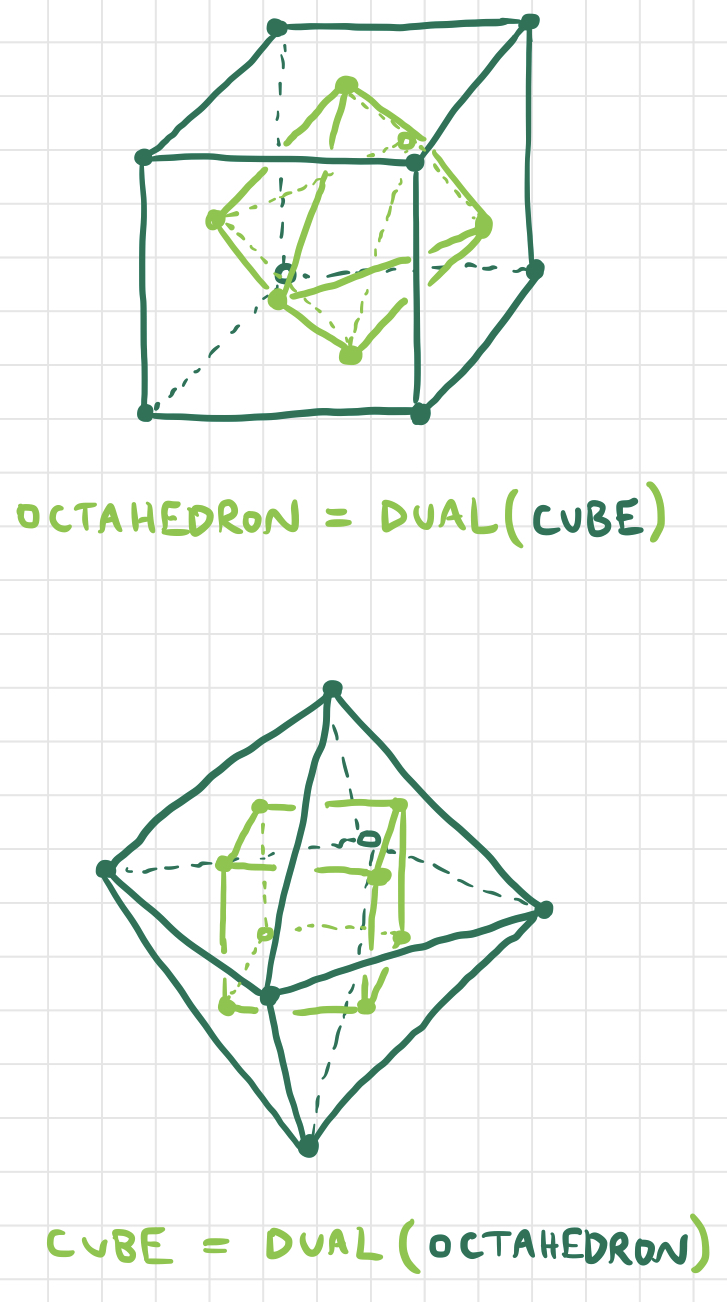 OCTAHEDRON = DUAL(CUBE)
CUBE = DUAL(OCTAHEDRON)